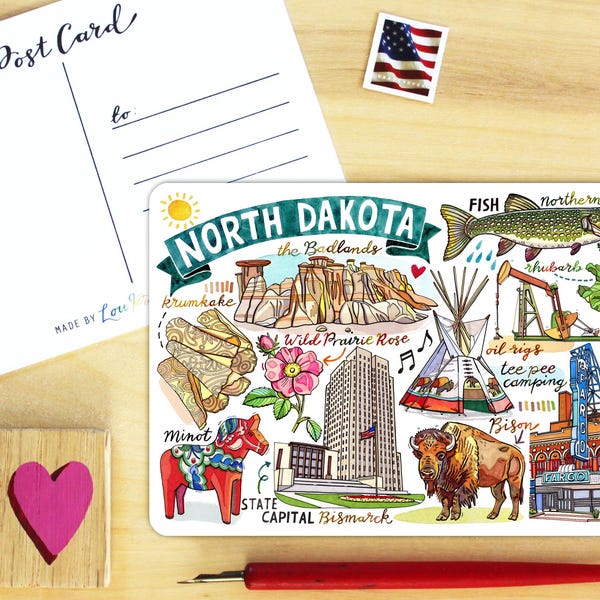 Post Card
to:
MADE BY Lou
NORTH DAKOTA
the Badlands
FISH northern
rhubarb
krumkake
Wild Prairie Rose
oil rigs
tee pee
camping
Minot
Bison
FARGO
FARGO
STATE
CAPITAL Bismarck